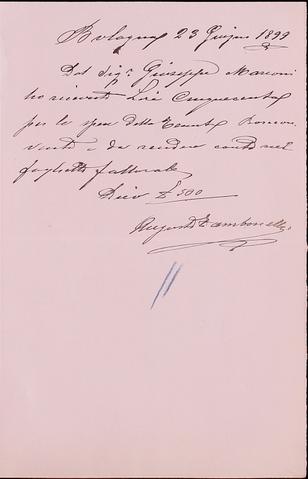 Bologna 23 Giugno 1899
Dal Sig.r Giuseppe Marconi
ho ricevuto Lire Cinquecento
per le spese della Tenuta
e da rendere conto nel
foglietto fattorale
Dico £ 500
Augusto Zambonelli